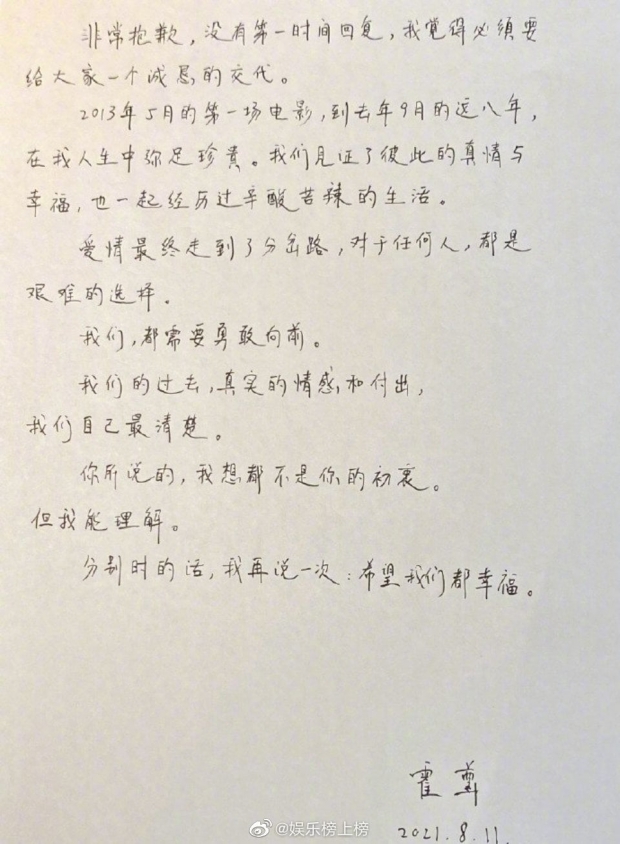 非常抱歉，没有第一时间回复，我觉得必须要
给大家一个诚恳的交代。
2013年5月的第一场电影，到去年9月的近八年，
在我人生中弥足珍贵。我们见证了彼此的真情与
幸福，也一起经历过辛酸苦辣的生活。
爱情最终走到了分岔路，对于任何人，都是
艰难的选择。
我们，都需要勇敢向前。
我们的过去，真实的情感和付出，
我们自己最清楚。
你所说的，我想都不是你的初衷。
但我能理解。
分别时的话，我再说一次：希望我们都幸福。
霍尊
2021.8.11.
@娱乐榜上榜